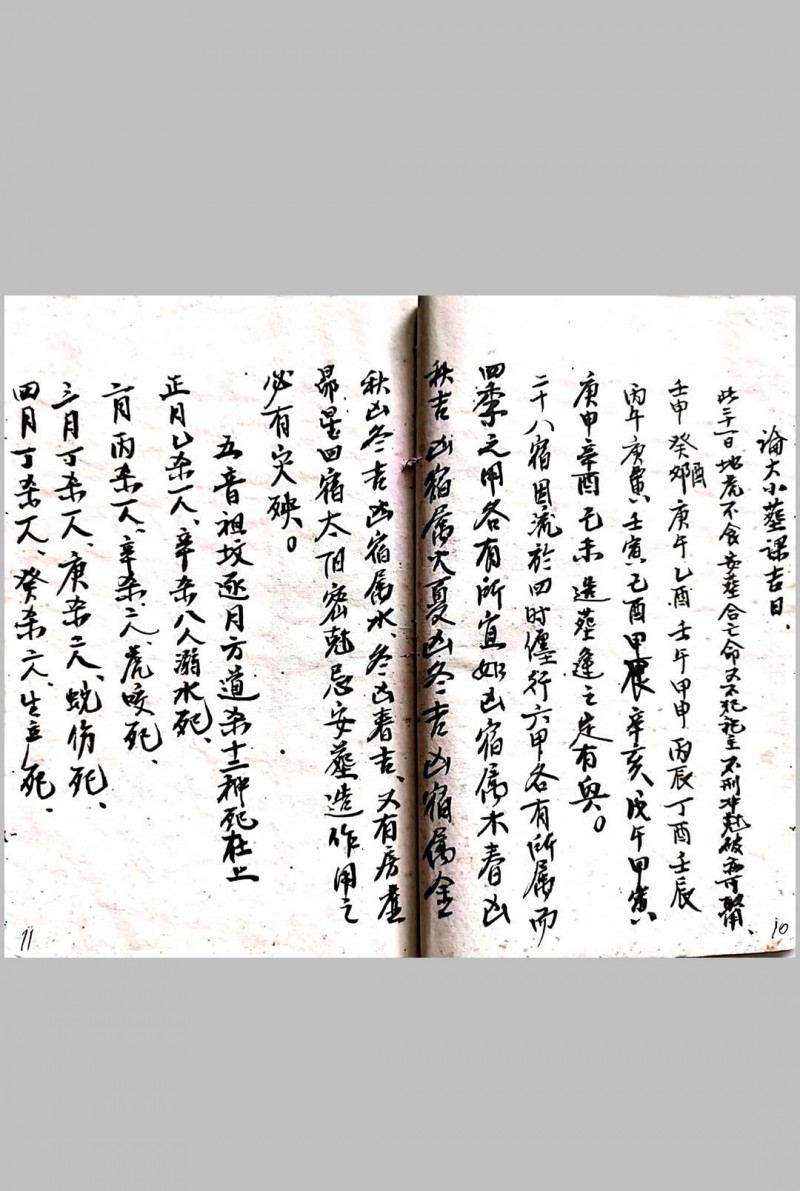 論大小葬课吉日、
此二十一日地虎不食 安葬合亡命又不犯祀主 不刑冲尅破亦可取用、
壬申 癸酉 庚午 乙酉 壬午 甲申 丙辰 丁酉 壬辰
丙午 庚寅 壬寅 己酉 甲辰 辛亥 戊午 甲寅
庚申 辛酉 己未 造葬逢之定有兴。
二十八宿周流於四时缠行六甲各有所属而
四季之用各有所宜如凶宿属木春凶
秋吉 凶宿属火夏凶冬吉凶宿属金
秋凶冬吉凶宿属水、冬凶春吉、又有房虚
昴星四宿太阳密尅忌安葬造作用之
必有灾殃。
五音祖坟逐月方道杀十二种死在上
正月乙杀一人、辛杀八人溺水死、
二月丙杀一人、辛杀二人、虎咬死、
三月丁杀一人、庚杀二人、蛇伤死、
四月丁杀一人、癸杀二人、生立死、
10
11